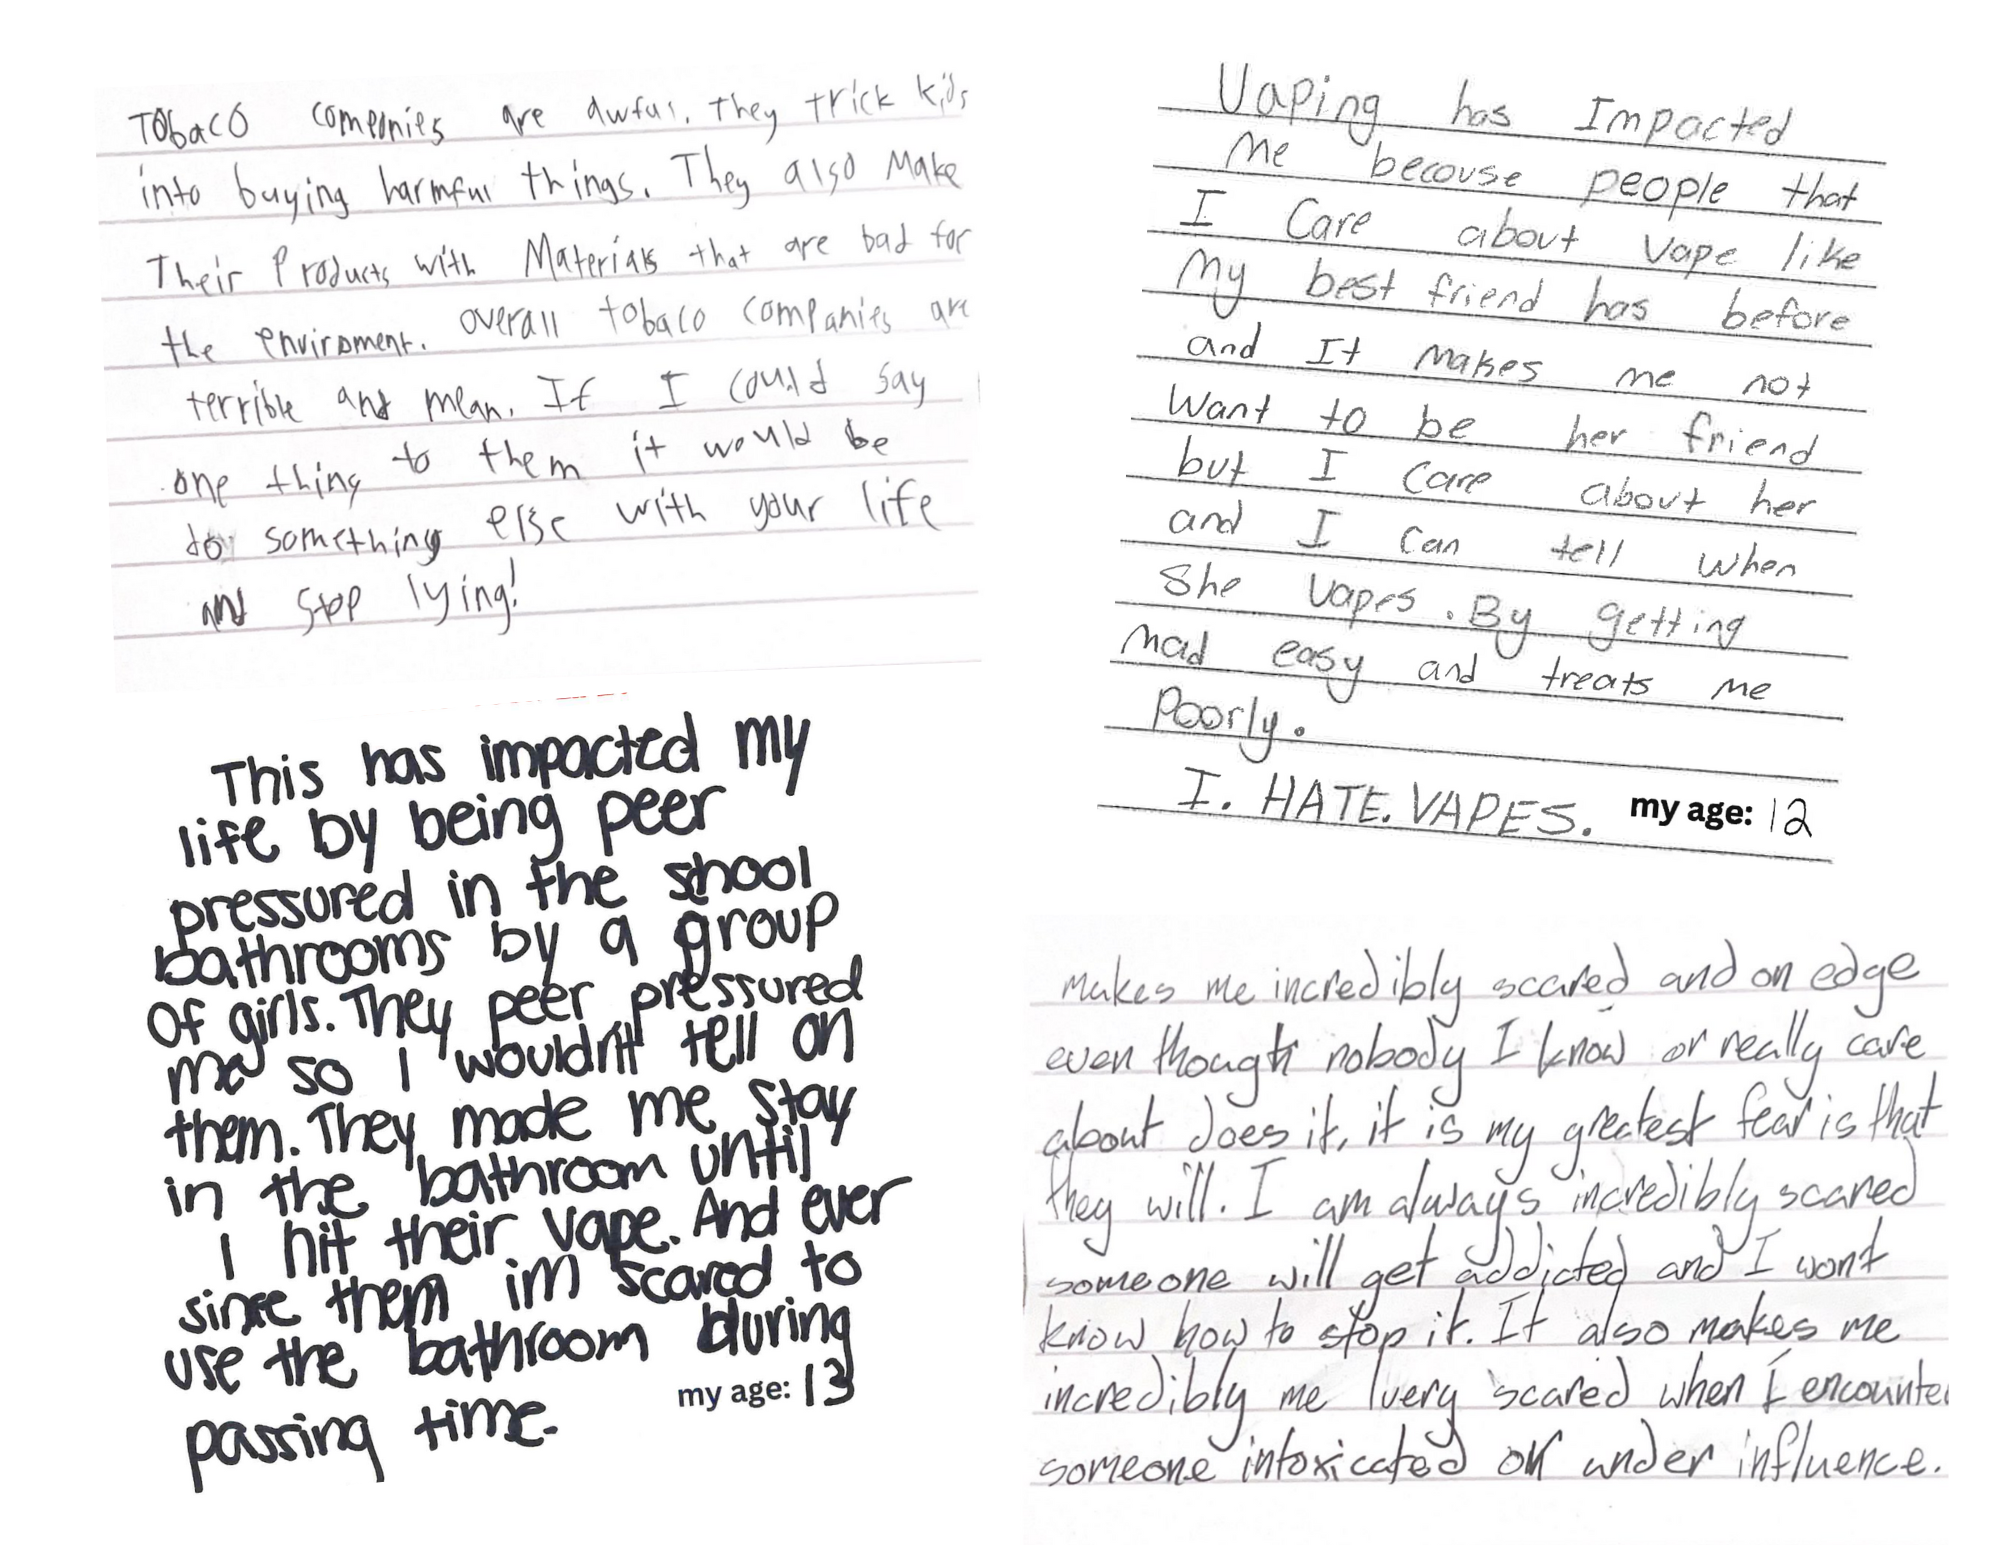 TObacO companies are awful. They trick kids
into buying harmful things. They also Make
Their Products with Materials that are bad for
the enviroment. overall tobaco companies are
terrible and mean. If I could say
one thing to them it would be
do something else with your life
and stop lying!
Vaping has Impacted
Me because people that
I Care about vape like
My best friend has before
and It makes me not
Want to be her friend
but I care about her
and I can tell when
She vapes. By getting
mad easy and treats me
Poorly.
I. HATE. VAPES. my age: 12
This has impacted my
life by being peer
pressured in the shool
bathrooms by a group
Of girls. They peer pressured
me so I wouldn't tell on
them. They made me stay
in the bathroom until
I hit their vape. And ever
since them im scared to
use the bathroom during
passing time. my age: 13
makes me incredibly scared and on edge
even though nobody I know or really care
about does it, it is my greatest fear is that
they will. I am always incredibly scared
someone will get addicted and I wont
know how to stop it. It also makes me
incredibly me very scared when I encounter
someone intoxicated or under influence.